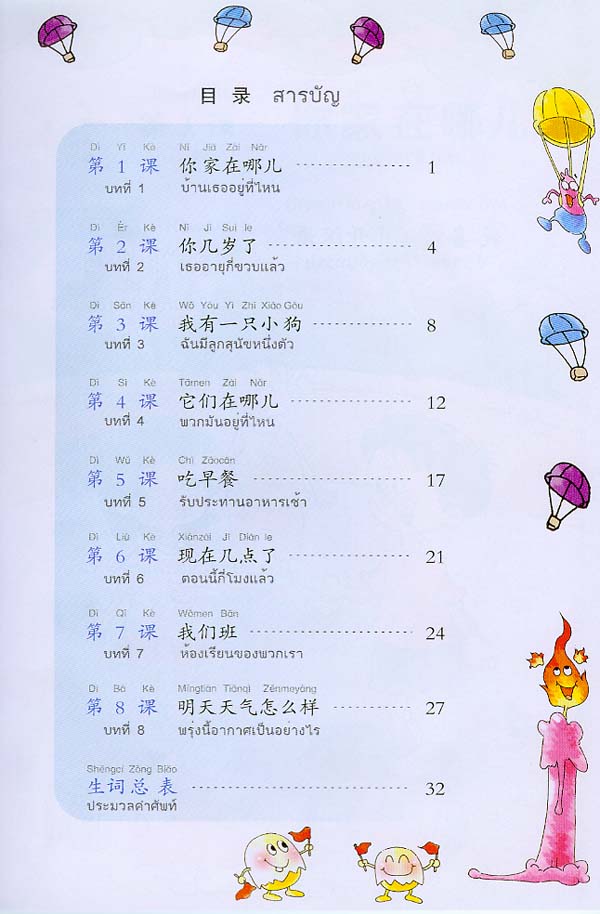 目 录 สารบัญ
Dì Yī Kè Nǐ Jiā Zài Nǎr
第 1 课 你家在哪儿 1
บทที่ 1 บ้านเธออยู่ที่ไหน
Dì Èr Kè Nǐ Jǐ Suì le
第 2 课 你几岁了 4
บทที่ 2 เธออายุกี่ขวบแล้ว
Dì Sān Kè Wǒ Yǒu Yì Zhī Xiǎo Gǒu
第 3 课 我有一只小狗 8
บทที่ 3 ฉันมีลูกสุนัขหนึ่งตัว
Dì Sì Kè Tāmen Zài Nǎr
第 4 课 它们在哪儿 12
บทที่ 4 พวกมันอยู่ที่ไหน
Dì Wǔ Kè Chī Zǎocān
第 5 课 吃早餐 17
บทที่ 5 รับประทานอาหารเช้า
Dì Liù Kè Xiànzài Jǐ Diǎn le
第 6 课 现在几点了 21
บทที่ 6 ตอนนี้กี่โมงแล้ว
Dì Qī Kè Wǒmen Bān
第 7 课 我们班 24
บทที่ 7 ห้องเรียนของพวกเรา
Dì Bā Kè Míngtiān Tiānqì Zěnmeyàng
第 8 课 明天天气怎么样 27
บทที่ 8 พรุ่งนี้อากาศเป็นอย่างไร
Shēngcí Zǒng Biǎo
生词总表 32
ประมวลคำศัพท์